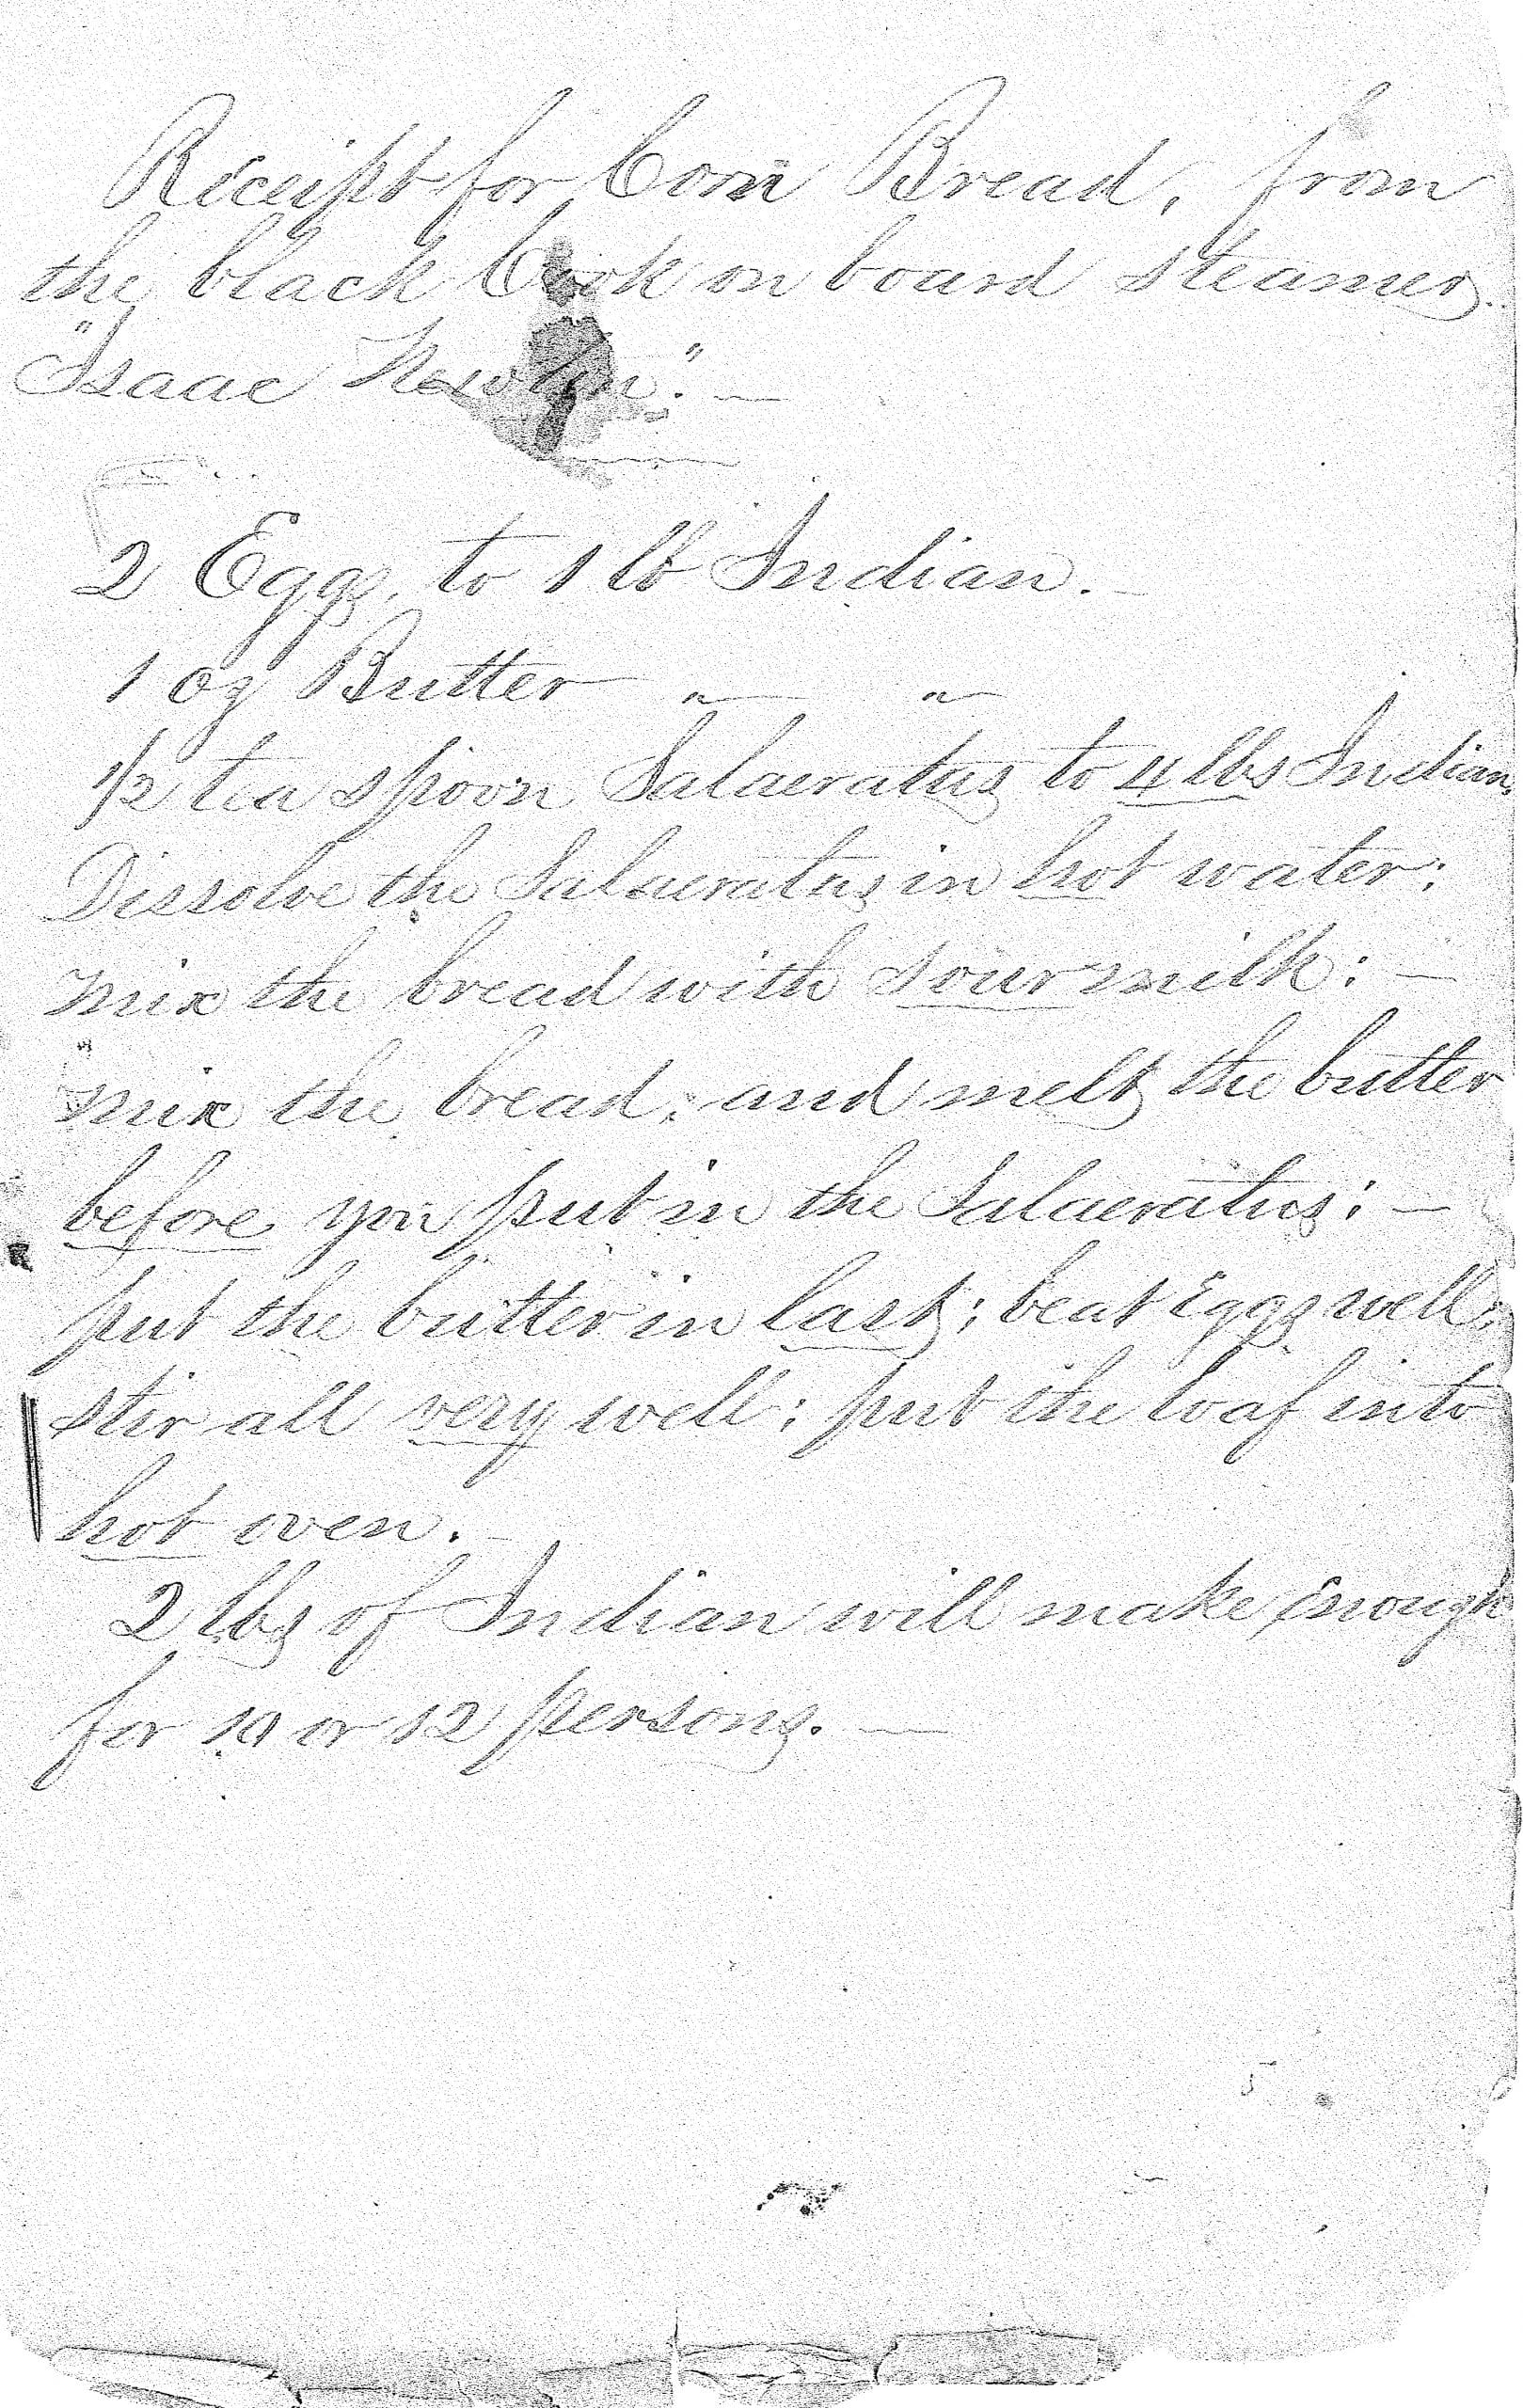 Receipt for Corn Bread, from
the black Cook on board steamer
"Isaac Newton". —
2 Eggs, to 1 lb Indian. —
1 oz Butter " "
1/2 tea spoon Salaeratus to 4 lbs Indian,
Dissolve the Salaeratus in hot water;
mix the bread with sour milk: —
mix the bread, and melt the butter
before you put in the Salaeratus; —
put the butter in last; beat Eggs well;
stir all very well; put the loaf into
hot oven. —
2 lbs of Indian will make enough
for 10 or 12 persons. —